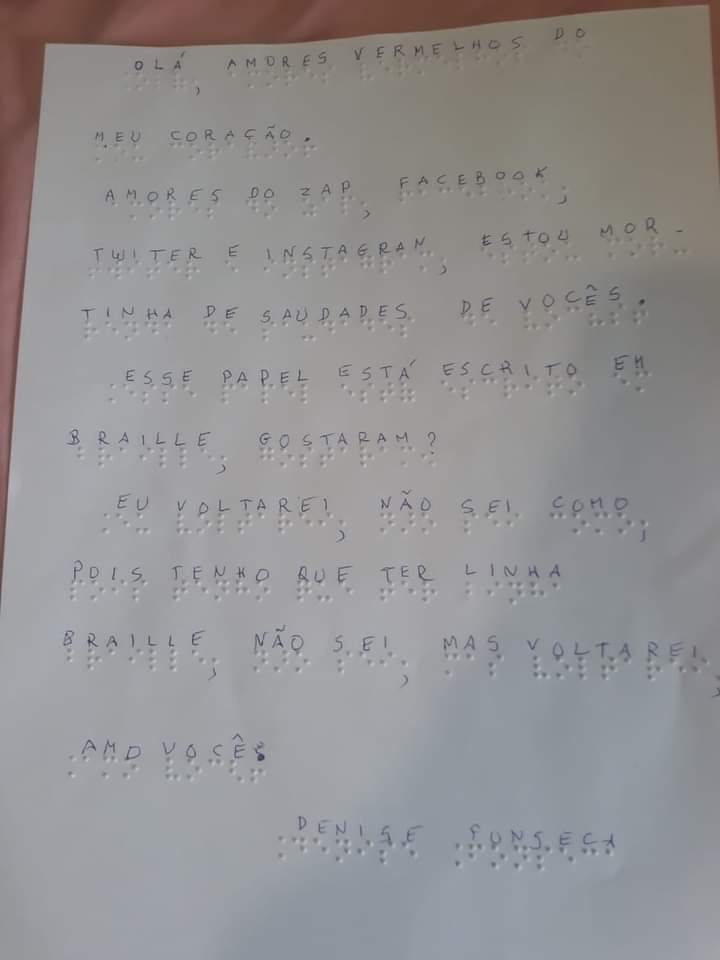 OLÁ, AMORES VERMELHOS DO
MEU CORAÇÃO.
AMORES DO ZAP, FACEBOOK,
TWITER E INSTAGRAN, ESTOU MOR-
TINHA DE SAUDADES DE VOCÊS.
ESSE PAPEL ESTÁ ESCRITO EM
BRAILLE, GOSTARAM?
EU VOLTAREI, NÃO SEI COMO,
POIS TENHO QUE TER LINHA
BRAILLE, NÃO SEI, MAS VOLTAREI,
AMO VOCÊS.
DENISE FONSECA